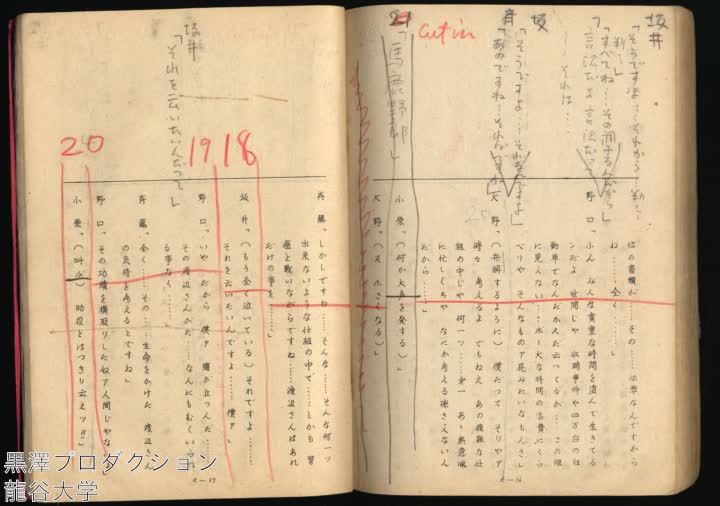 坂井
「そうですよ…それから…判…
判…」
「すべてね…その調子なんだから」
…それは…
坂
「そうですよ…それなんですよ」
斉「あのですね…それね
Cut in
「馬鹿野郎」
位の書類が……その……必要なんですから
ね……全く……」
野 口「ふん みんな貴重な時間を盗んで生きてる
ンだよ 世間じゃ 収賄事件や四万台の自
動車でなんだかんだ云ってるが……この眼
に見えない……ボー大な時間の浪費にくら
べりや そんなものア 屁みたいなもんさ」
大 野「(弁解するように) 僕だつて そりやア
時々 考えるよ でもねえ あの複雑な仕
組の中じや 何一ツ……第一 あゝ無意味
に忙しくちや なにか考える暇さえないん
だから……」
小 原「(何か大声を発する)」
大 野「(又 小さくなる)」
18
19
20
坂井
「それを云いたいんだって」
斉 藤「しかしですね……そんな……そんな何一ツ
出来ないような仕組の中で……しかも 胃
癌と戦いながらですね……渡辺さんはあれ
だけの事を……」
坂 井「(もう全く泣いている) それですよ……
それを云いたいんですよ……僕ア」
野 口「いや だから 僕ア 腹が立つんだ……
その渡辺さんがだ……なんにもむくいられ
る事なく……」
斉 藤「全く……その……生命をかけた 渡辺さん
の気持を考えるとですね」
野 口「その功績を横取りした奴ア 人間じやな
小 原「(叫ぶ) 助役とはつきり云えツ!!」
黒澤プロダクション
龍谷大学